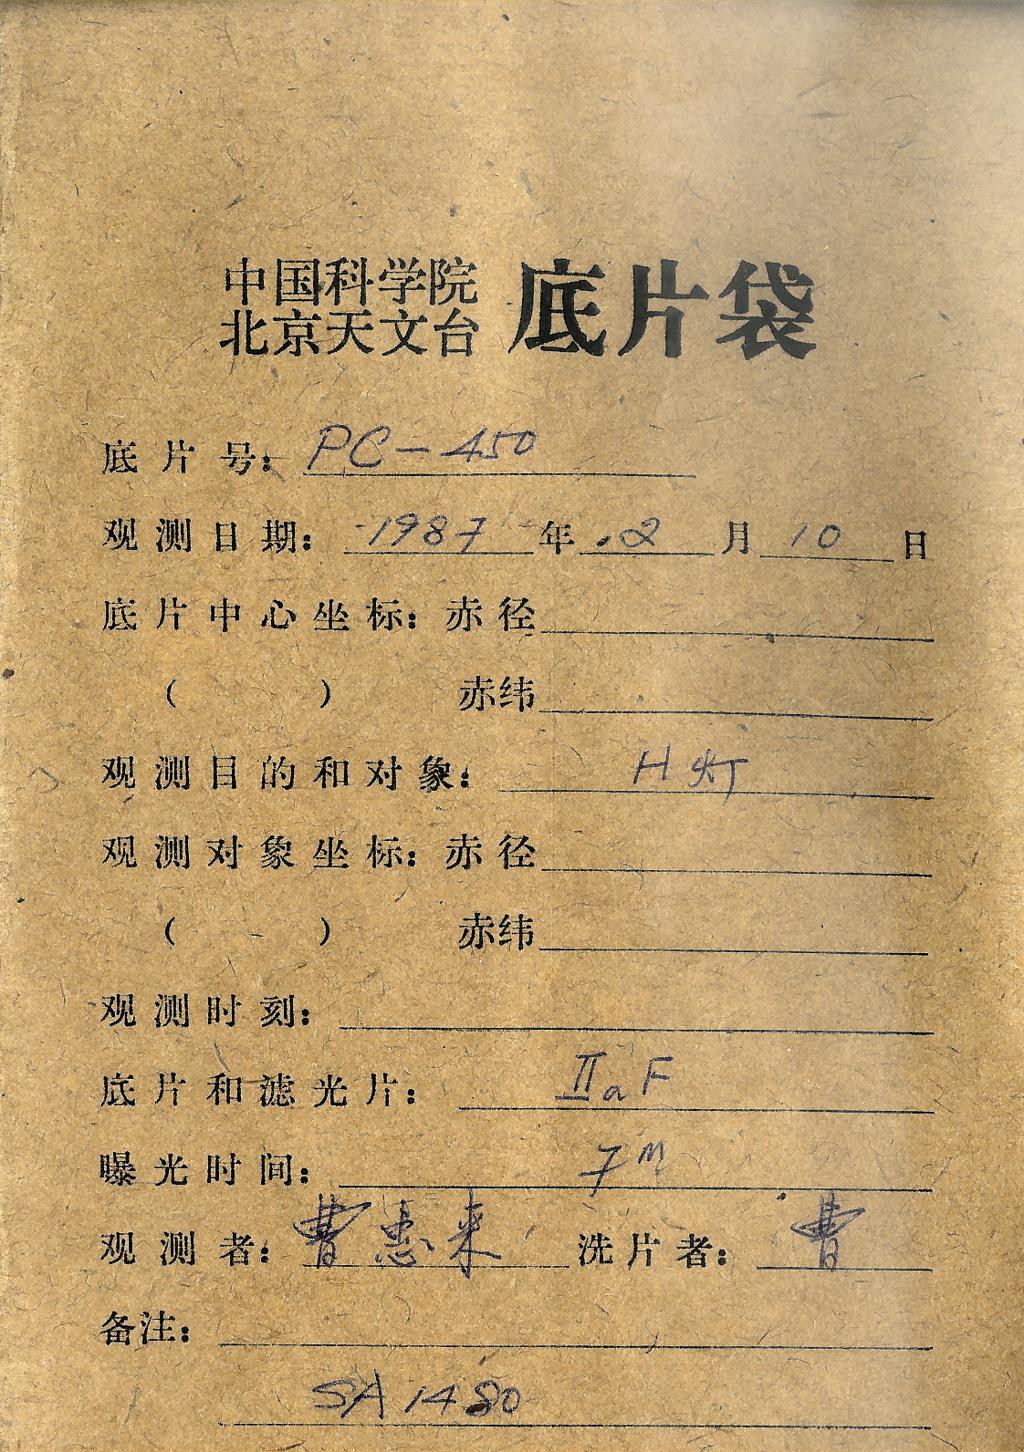 中国科学院 底片袋
北京天文台
底片号: PC-450
观测日期: 1987年 2月 10日
底片中心坐标: 赤径
( ) 赤纬
观测目的和对象: H灯
观测对象坐标: 赤径
( ) 赤纬
观测时刻:
底片和滤光片: IIaF
曝光时间: 7m
观测者: 曹惠来 洗片者: 曹
备注:
SA 1480